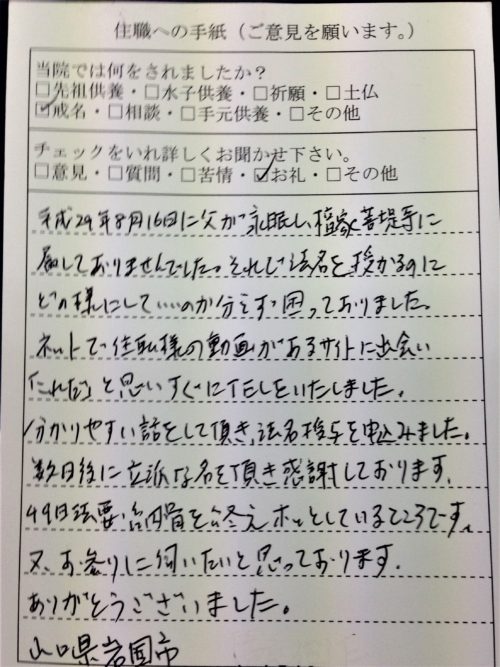 住職への手紙（ご意見を願います。）
当院では何をされましたか？
□先祖供養・□水子供養・□祈願・□土仏
☑戒名・□相談・□手元供養・□その他
チェックをいれ詳しくお聞かせ下さい。
□意見・□質問・□苦情・☑お礼・□その他
平成29年8月16日に父が永眠し、檀家菩提寺に
属しておりませんでした。それで法名を授かるのに
どの様にしていいのか分らず困っておりました。
ネットで住職様の動画があるサイトに出会い
「これだ」と思いすぐにTELをいたしました。
分かりやすい話をして頂き、法名授与を申込みました。
数日後に立派な名を頂き感謝しております。
49日法要、納骨を終えホッとしているところです。
又、お参りに伺いたいと思っております。
ありがとうございました。
山口県岩国市